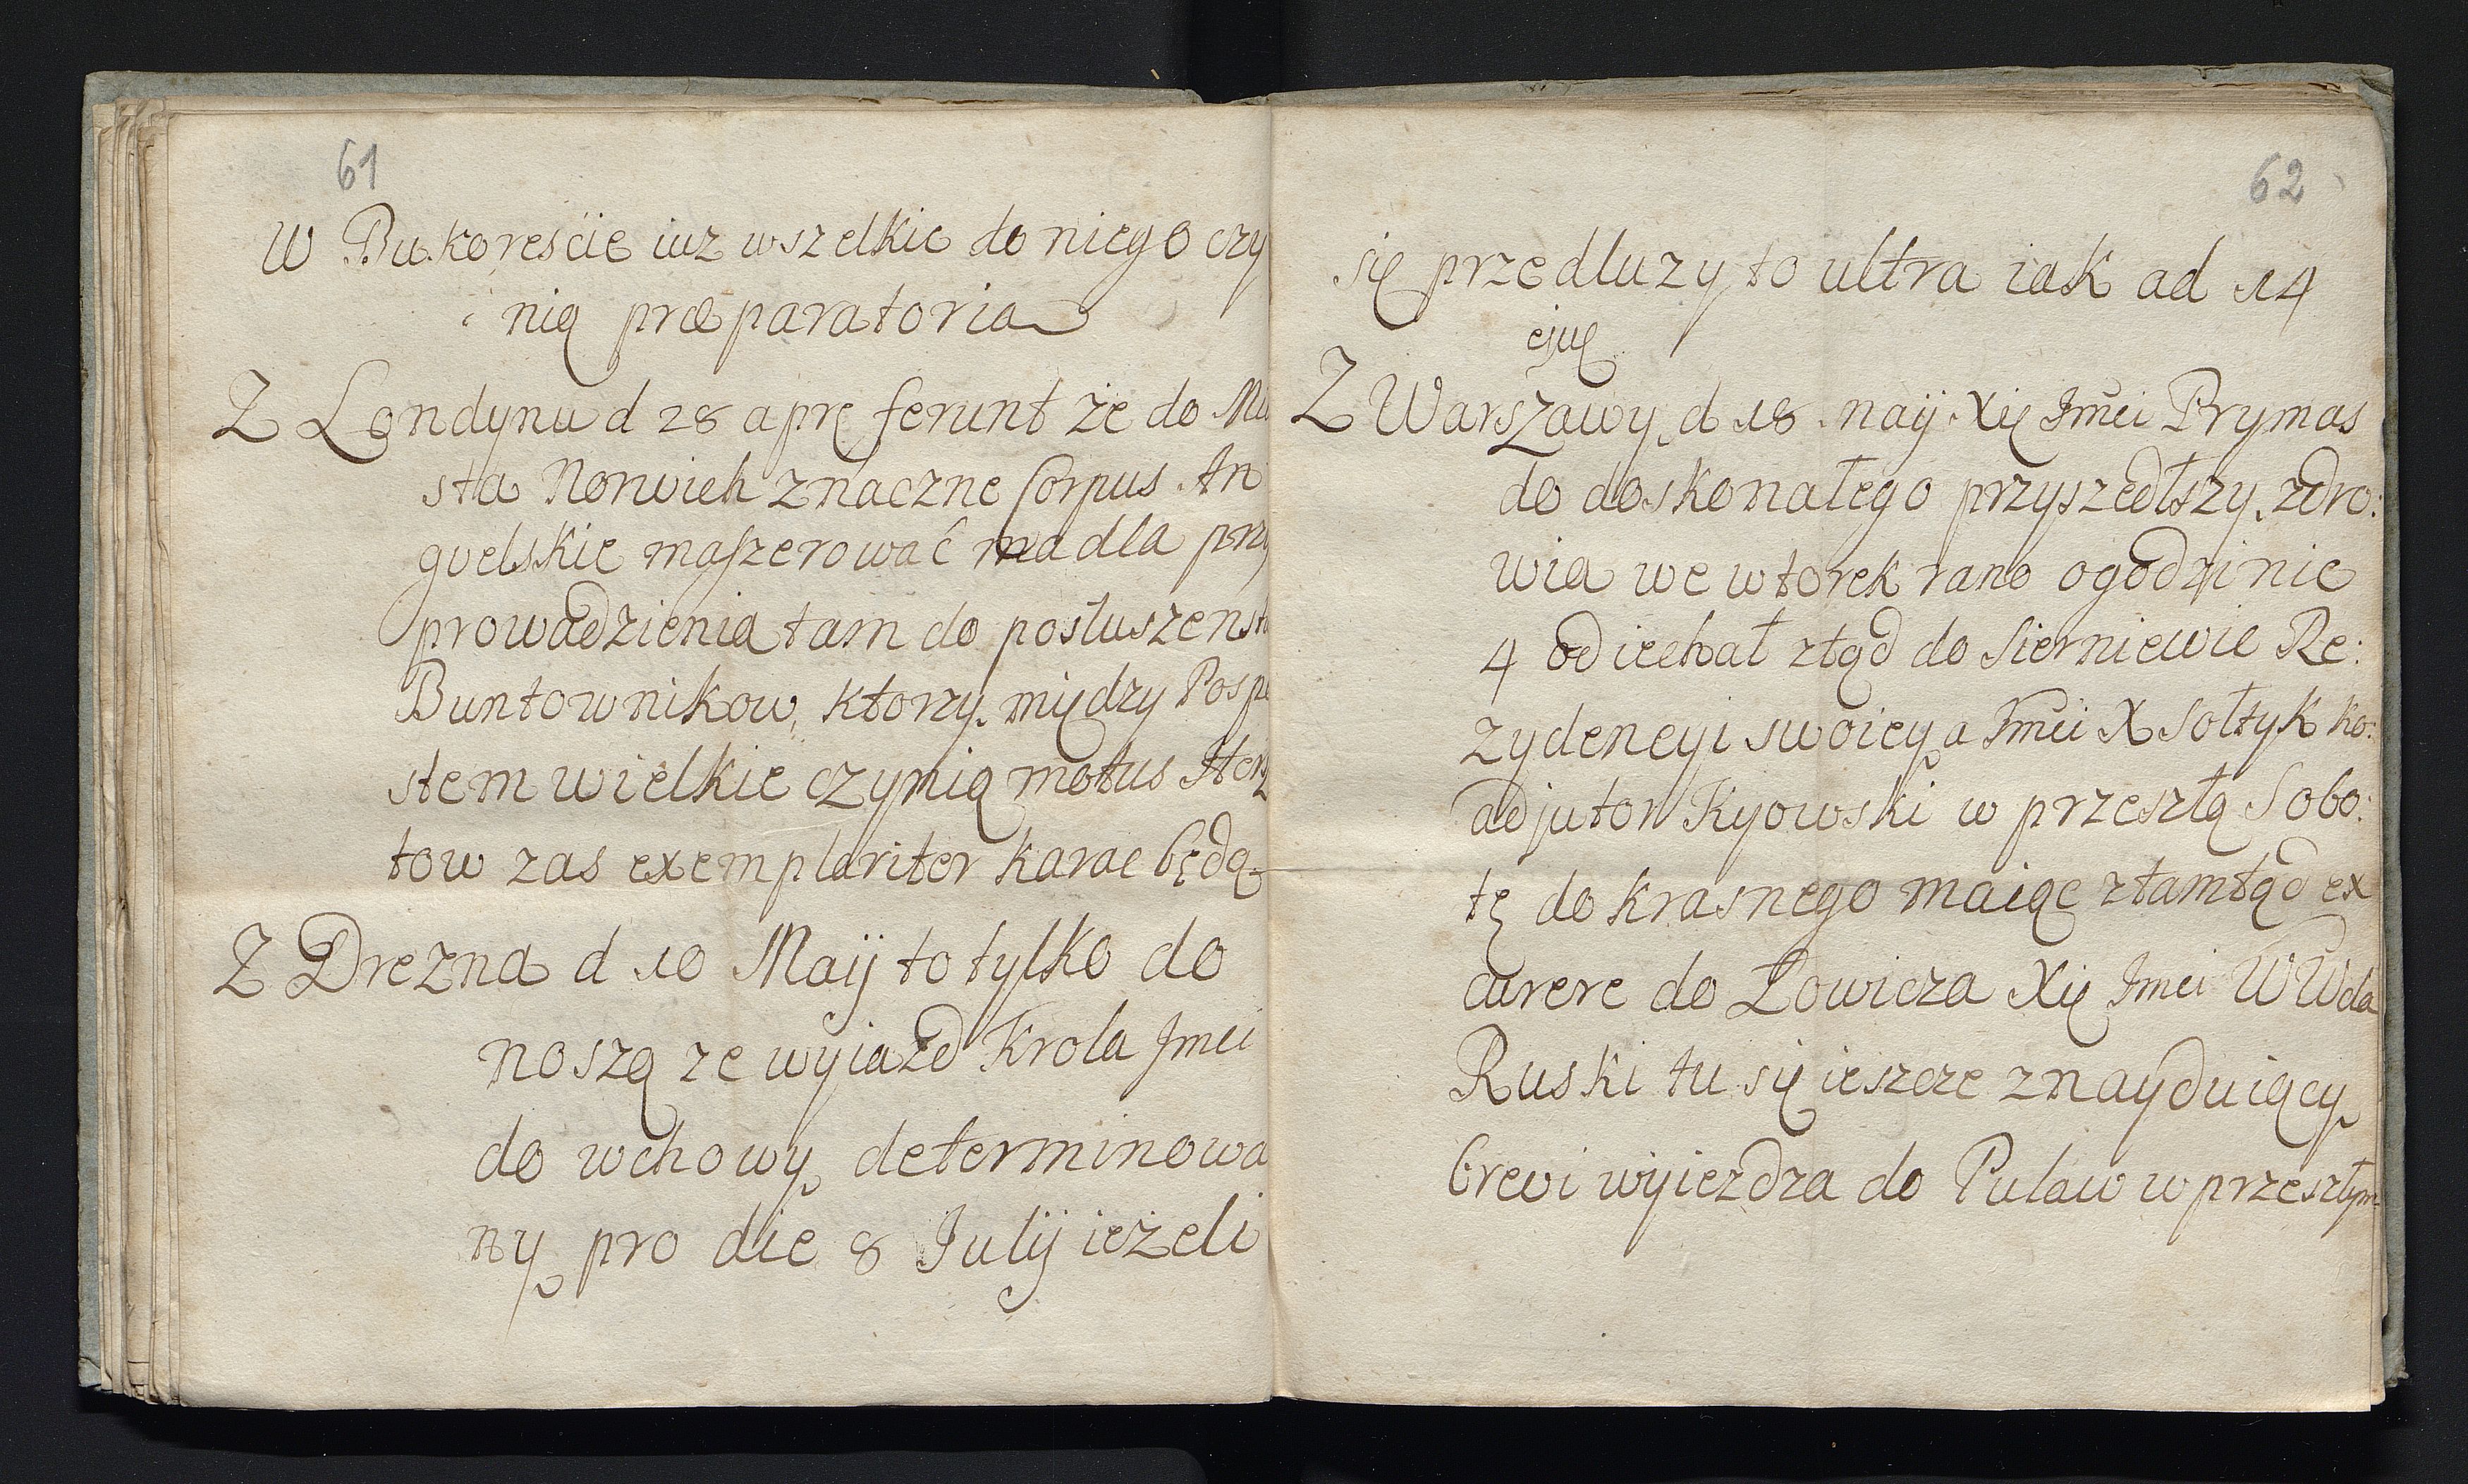 61
W Bukoresćie iuz wszelkie do niego czy
nią præparatoria
Z Londynu d 28 apr ferunt że do
sta Norwich znaczne Corpus An
guelskie maszerować ma dla
prowadzienia tam do posłuszenst
Buntownikow, ktorzy między Posp
stem wielkie czynią motus
tow zas exemplariter karac będą
Z Drezna d 10 Maij to tylko do
noszą ze wyiazd Krola Jmci
do wchowy determinowa
ny pro die 8 Julij ieżeli
62
się przedluzy to ultra iak ad 14
ejus
Z Warszawy d 18 maij Xię Jmci Prymas
do doskonałego przyszedłszy zdro:
wia we wtorek rano o godzinie
4 odiechał ztąd do Sierniewic Re:
zydencyi swoiey a Jmci X Sołtyk ko:
adjutor Kyowski w przeszłą Sobo:
tę do krasnego maiąc ztamtąd ex
currere do Łowicza Xię Jmci WWda
Ruski tu się ieszcze znayduiący
brevi wyiezdza do Pulaw w przeszłym